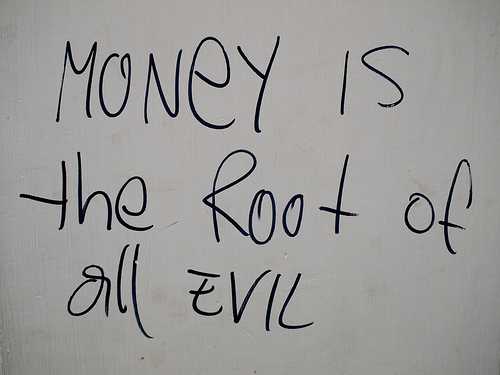 MONEY IS
the Root of
all EVIL